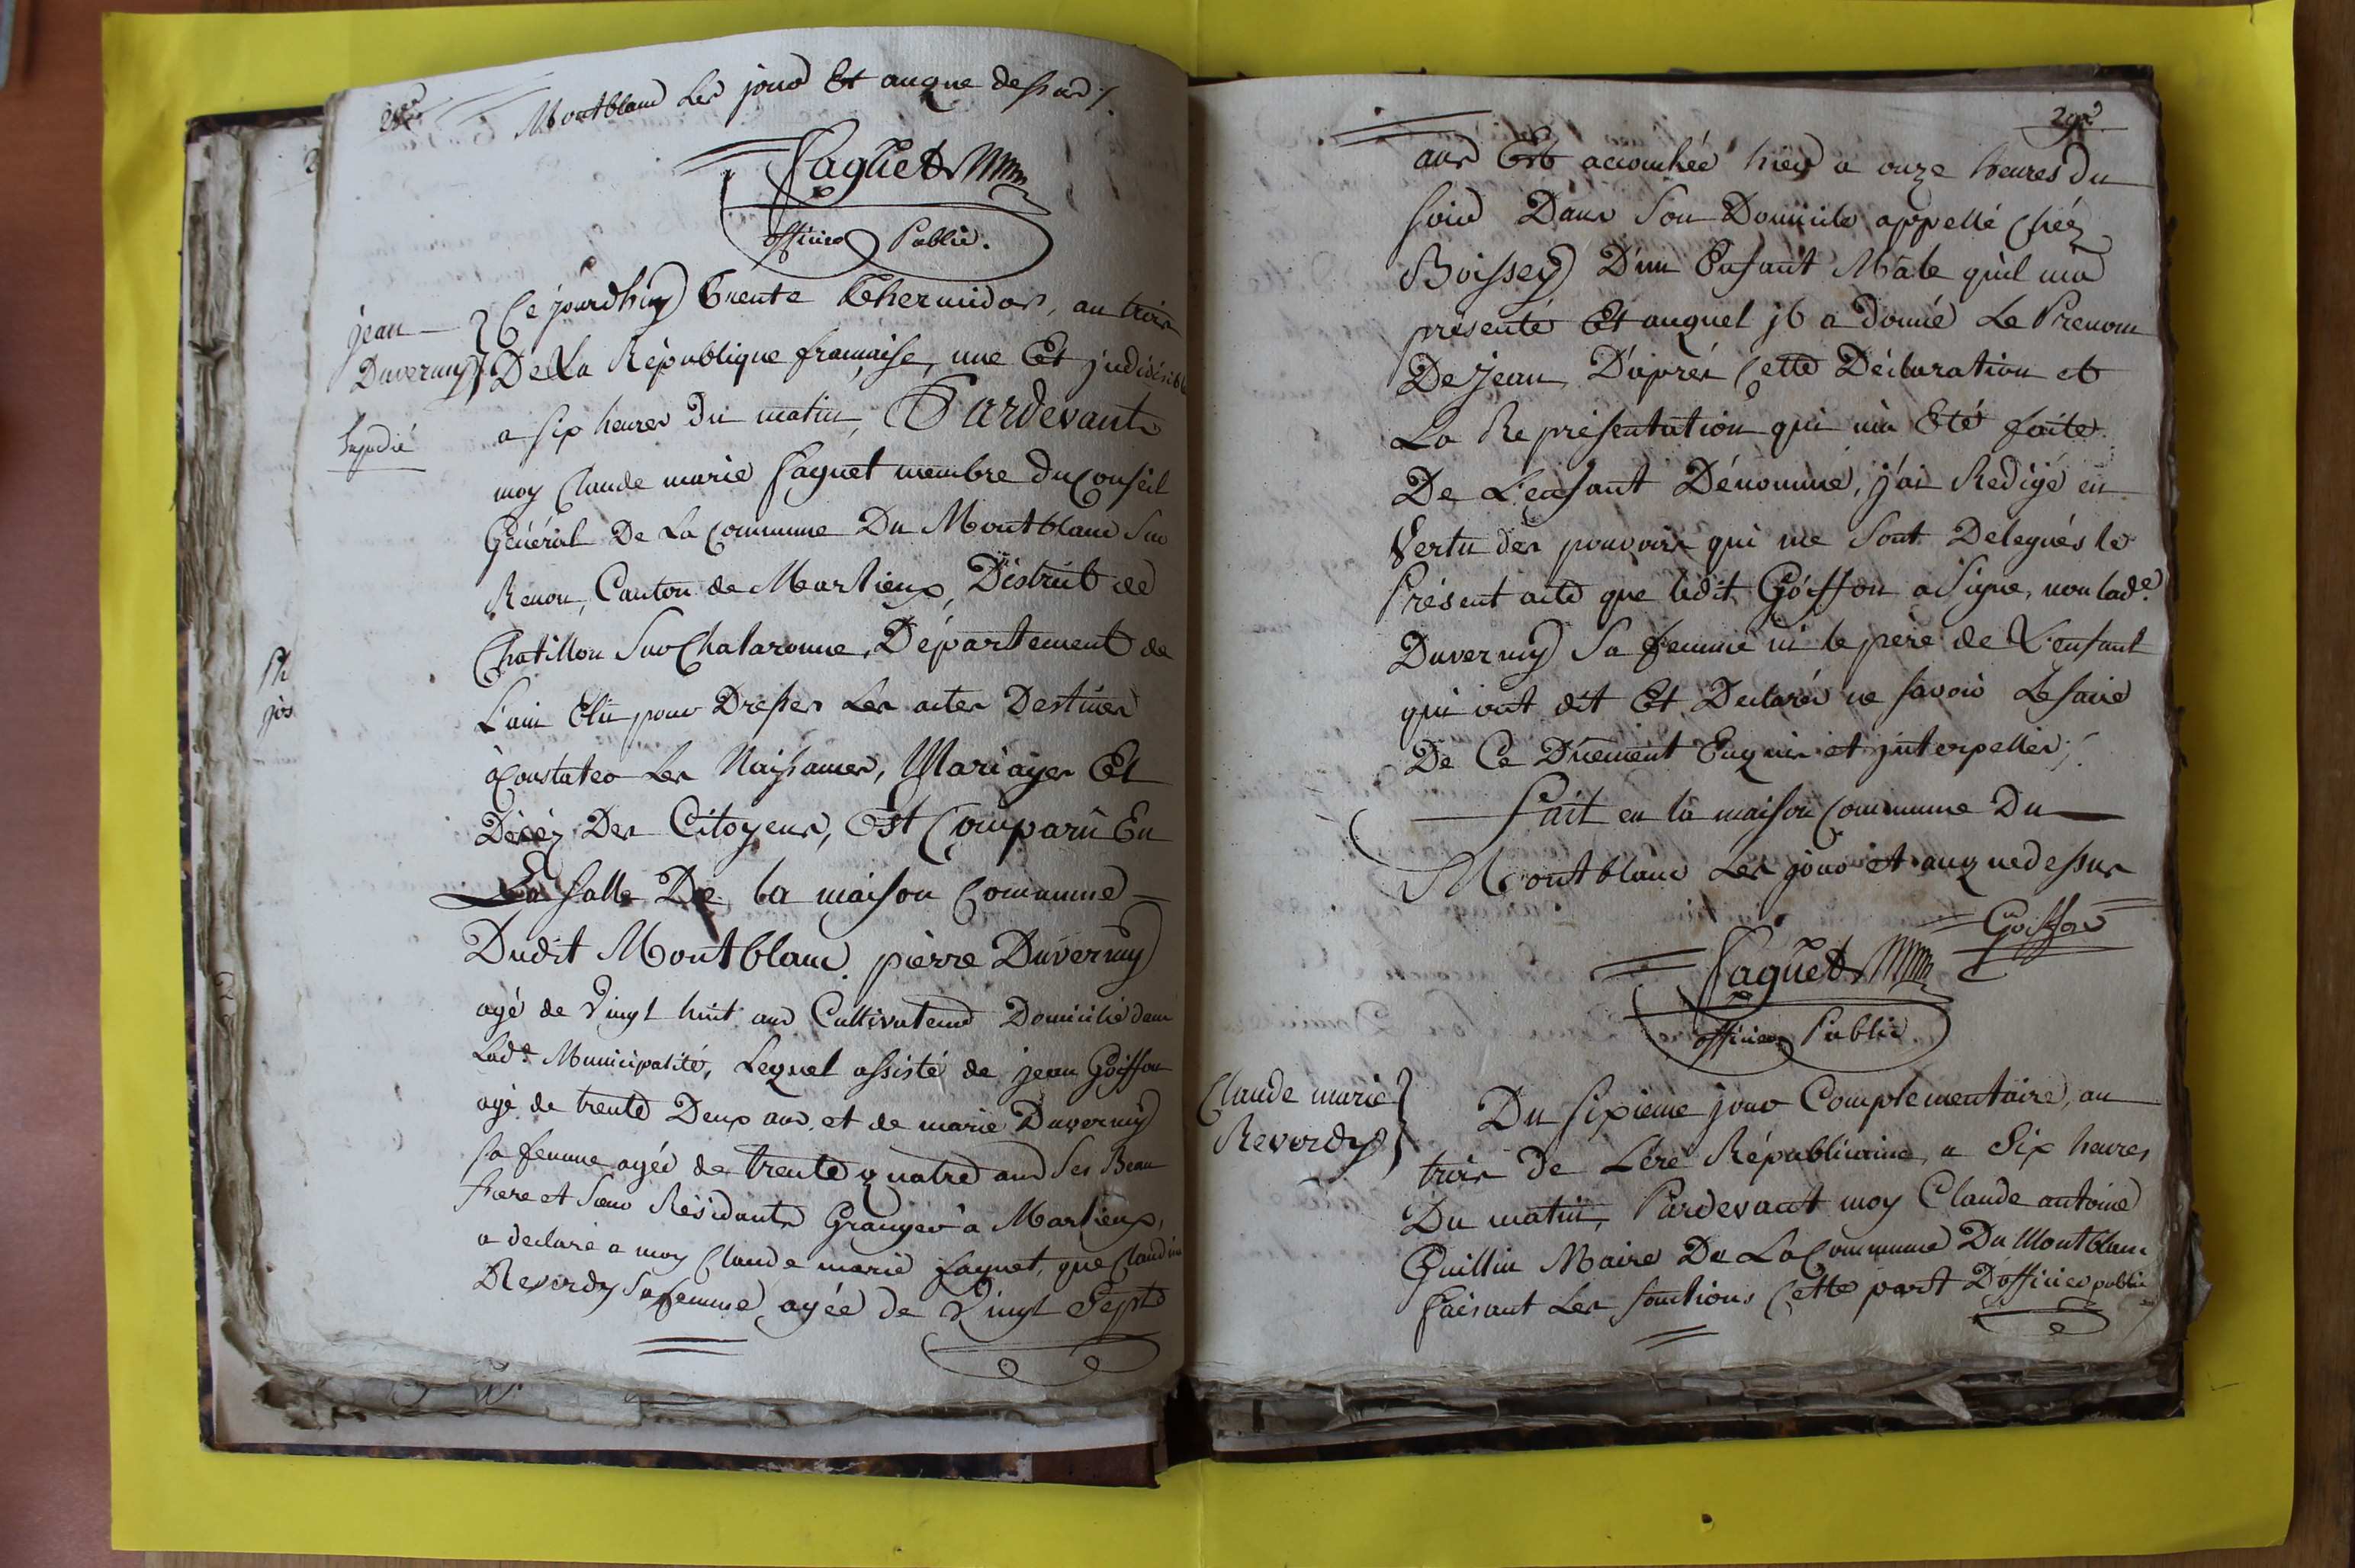 Montblanc Les jour Et anque dessus /.
Faguet
officier Public.
jean
Duvernay
Ce jourdhuy trente thermidor, an trois
De La République francaise, une Et judivisible
a six heures Du matin, Pardevant
moy Claude marie faguet membre Du Conseil
Général De La Commune Du Montblanc Sur
Renon, Canton de Marlieux, District de
Chatillon Sur Chalaronne, Département de
L'ain Elu pour Dresser Les actes Destinés
à Constater Les Naissances, Mariages Et
Décéz Des Citoyens, Est Comparû En
La Salle De la maison Commune
Dudit Montblanc. pierre Duvernay
agé de Vingt huit ans Cultivateur Domicilié dans
Lad.e Municipalité, Lequel assisté de jean Goiffon
agé de trente Deux ans, et de marie Duvernay
sa femme agée de trente quatre ans Ses Beau
frere et Soeur Résidants Granger à Marlieux,
a declaré a moy Claude marie faguet, que Claudine
Reverdy Sa femme agée de Vingt Sept
ans Est accouchée hier a onze heures du
soir Dans Son Domicile appellé Chéz
Boissey D'un Enfant Mâle qu'il m'a
présenté Et auquel jl a Donné Le Prenom
De jean, D'aprés Cette Déclaration et
La Représentation qui m'a Eté faite
De L'enfant Dénommé, j'ai Rédigé en
Vertu des pouvoirs qui me Sont Delegués le
Présent acte que ledit Goiffon a Signé, non lad.e
Duvernay Sa femme ni le pere de L'enfant
qui ont dit Et Declaré ne savoir Le faire
De Ce Duement Enquis et jnterpellés /.
Fait en la maison Commune Du
Montblanc Les jour et anque dessus
Goiffon
Faguet
officier Public
Claude marie
Reverdy
Du Sixieme jour Complementaire, an
trois de L'ere Républicaine, a Six heures
Du matin, Pardevant moy Claude antoine
Guillin Maire De La Commune Du Montblanc
faisant Les fonctions Cette part D'officier public